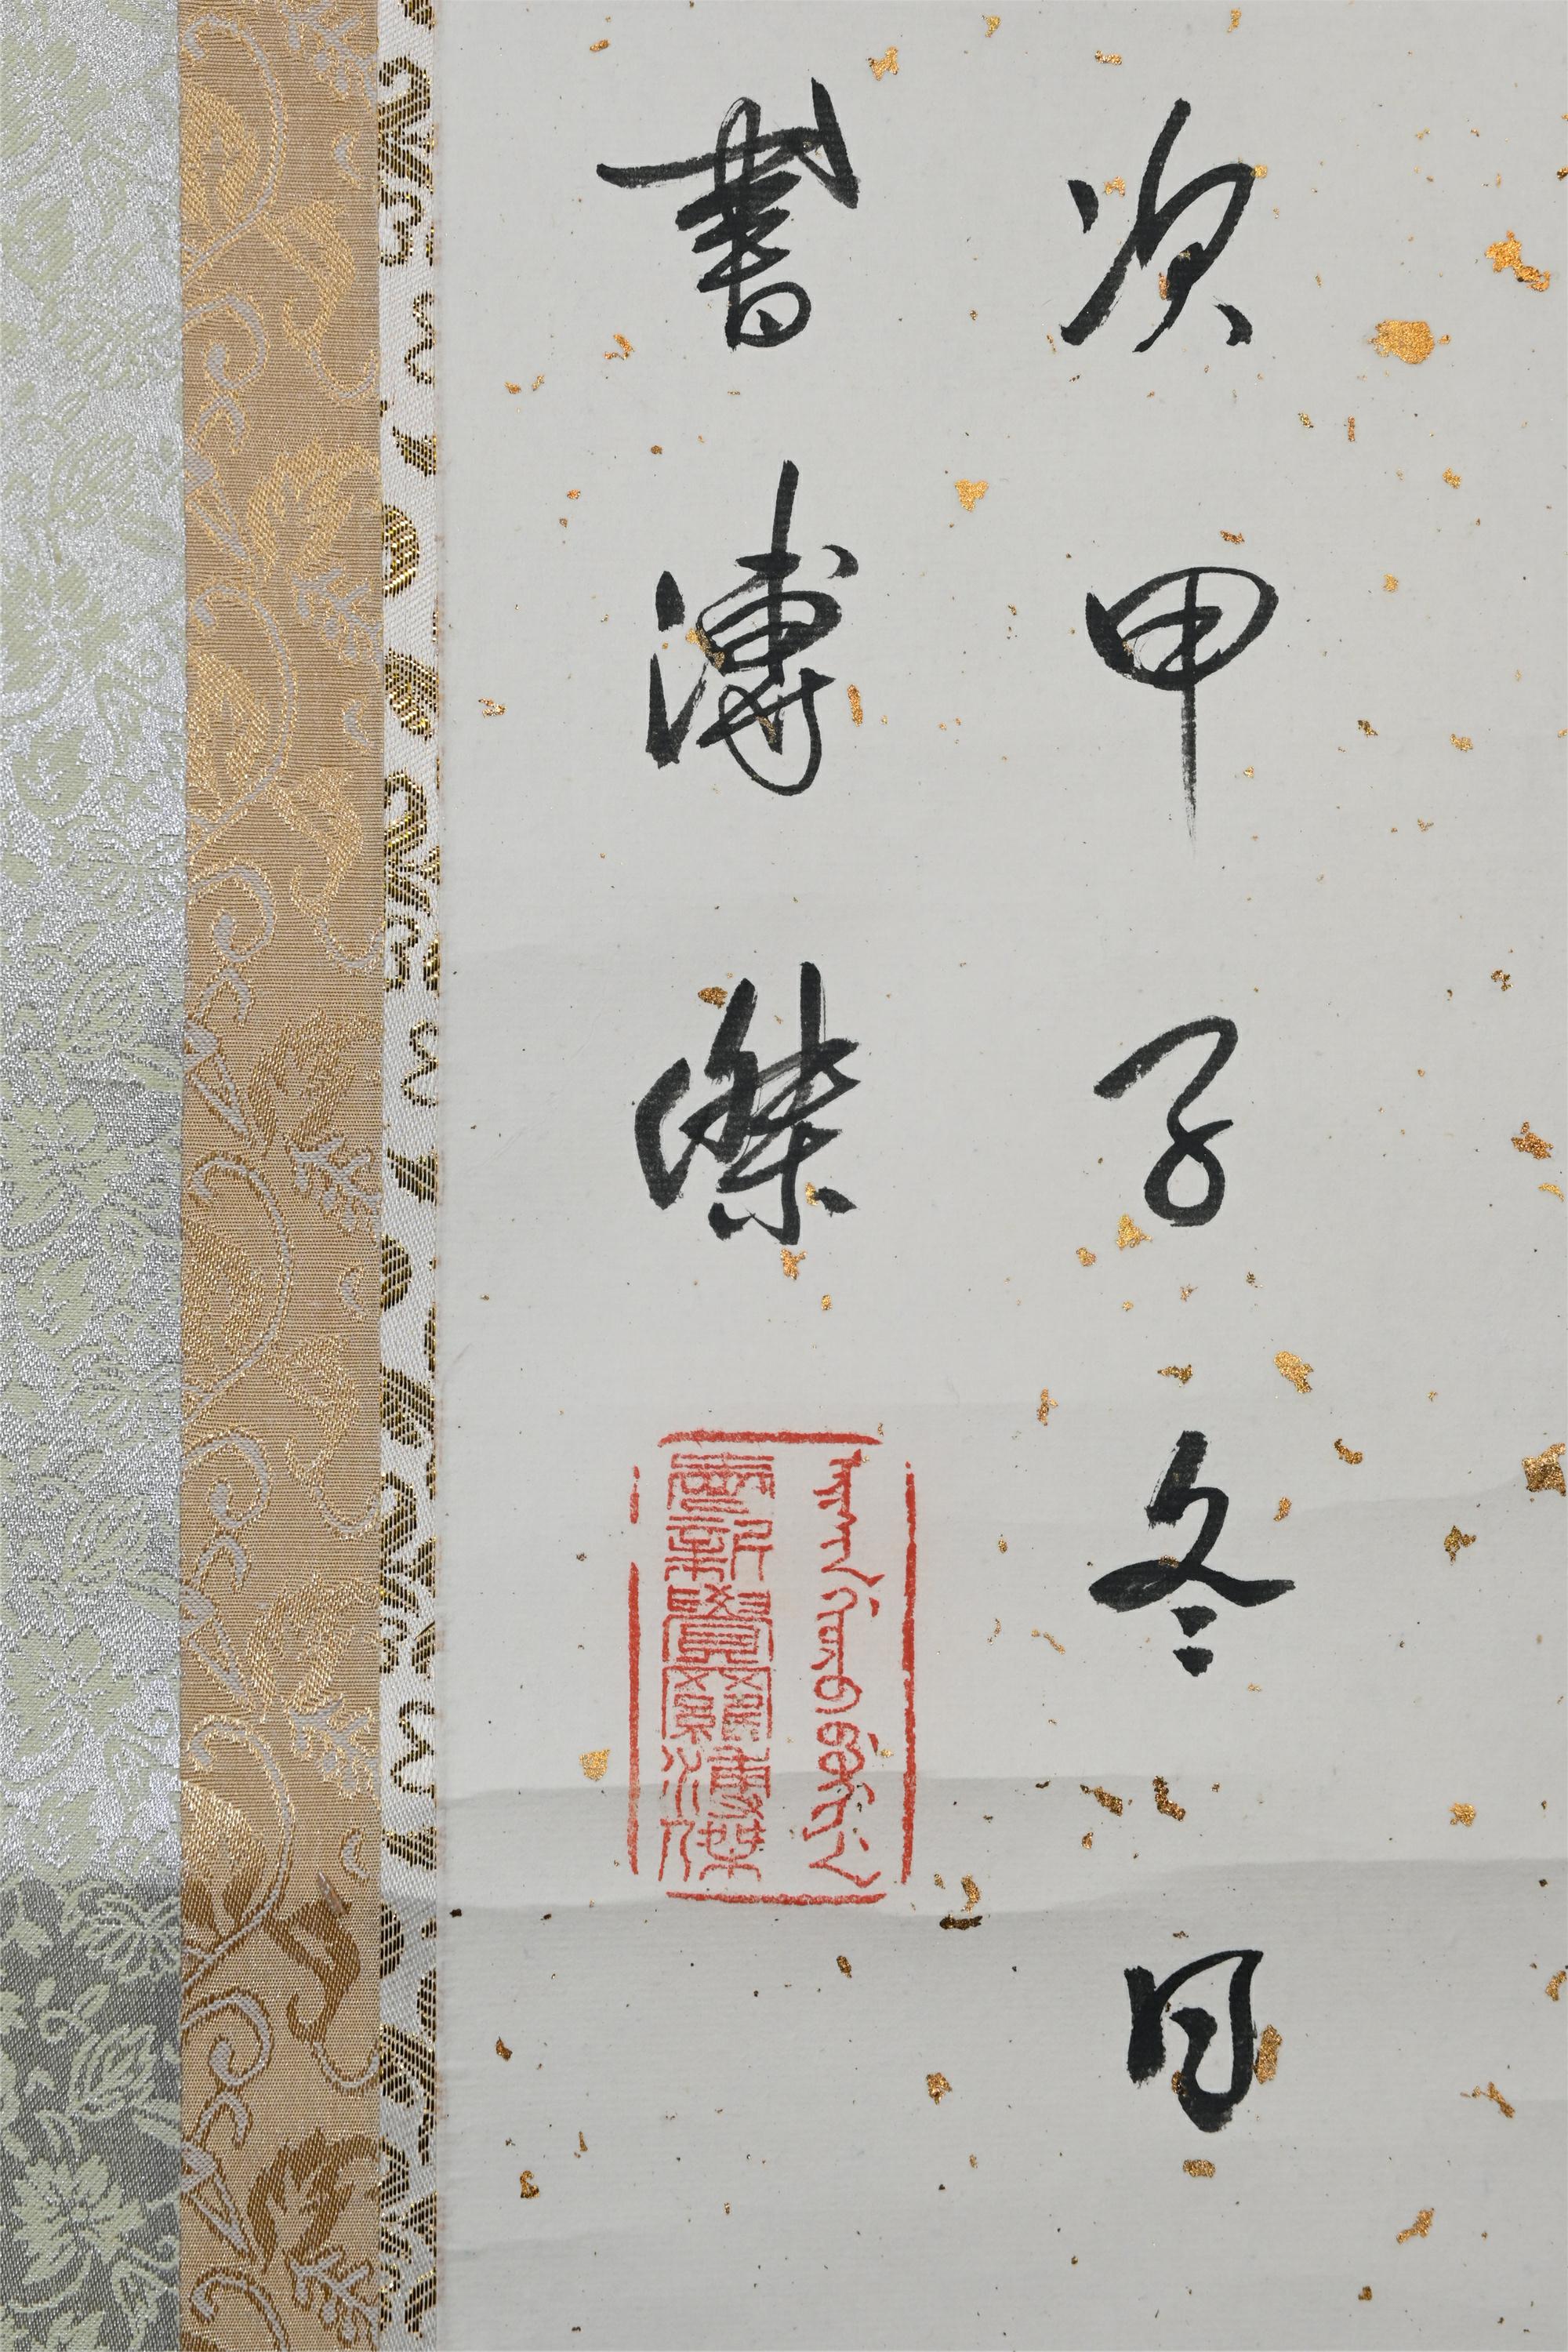 次甲子冬日
書溥傑
愛新覺羅溥傑